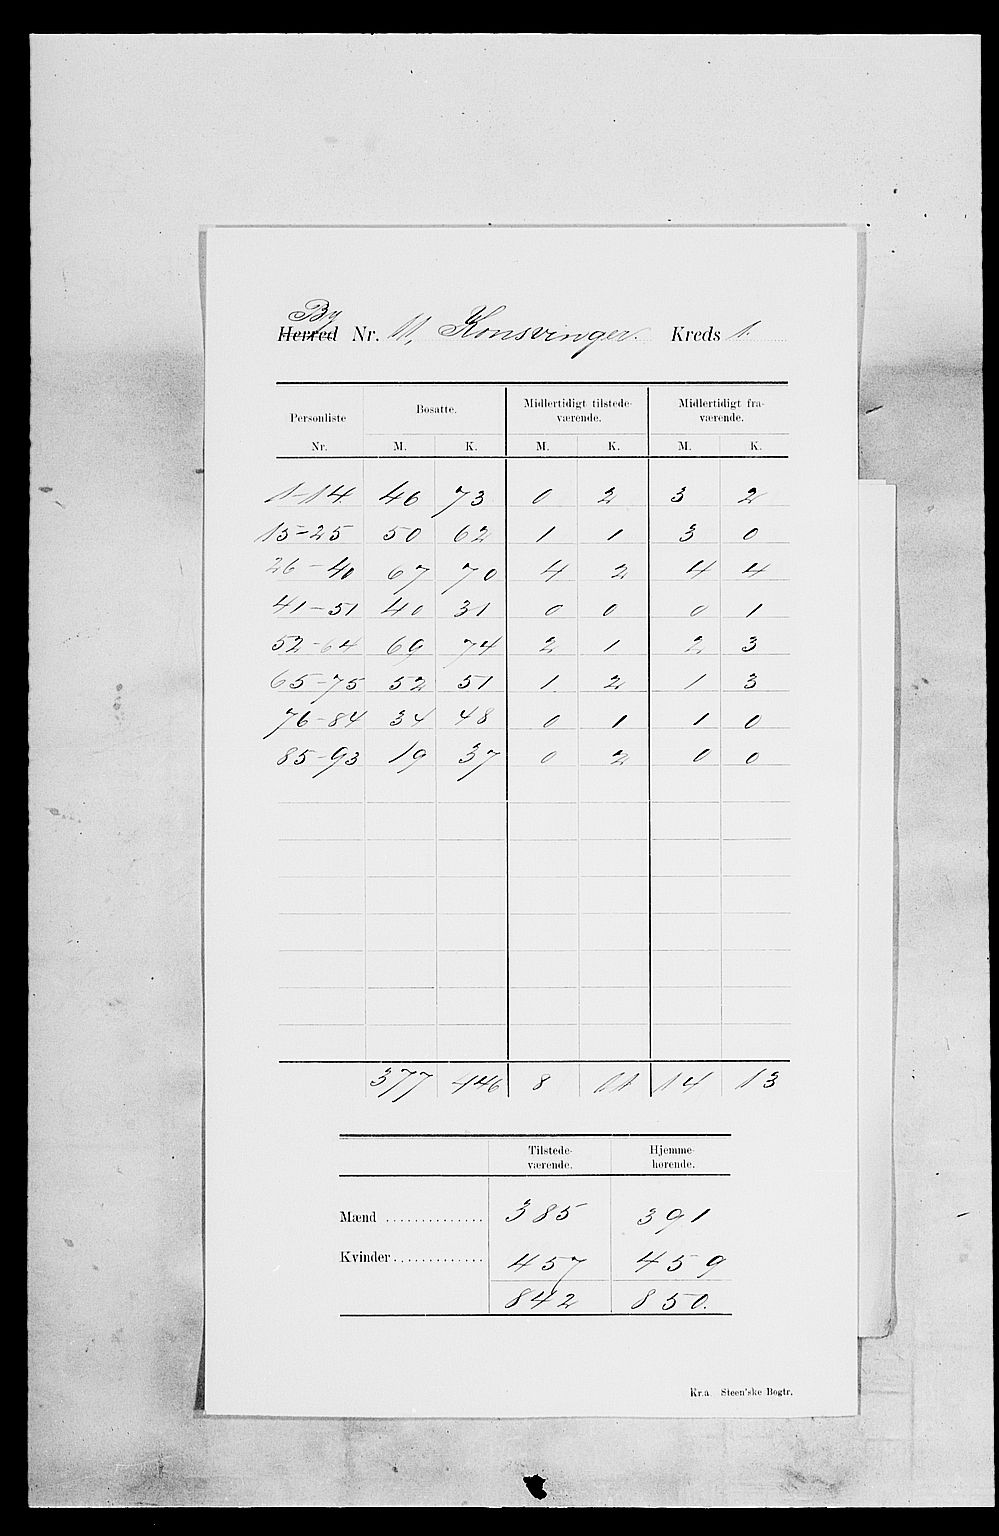 By
Herred Nr. 11, Konsvinger. Kreds 1.
Personliste Nr. Bosatte. Midlertidigt tilstede- værende. Midlertidigt fra- værende.
M. K. M. K. M. K.
1-14 46 73 0 2 3 2
15-25 50 62 1 1 3 0
26-40 67 70 4 2 4 4
41-51 40 31 0 0 0 1
52-64 69 74 2 1 2 3
65-75 52 51 1 2 1 3
76-84 34 48 0 1 1 0
85-93 19 37 0 2 0 0
377 446 8 11 14 13
Tilstede- værende. Hjemme- hørende.
Mænd .............. 385 391
Kvinder ............. 457 459
842 850.
Kr.a. Steen'ske Bogtr.